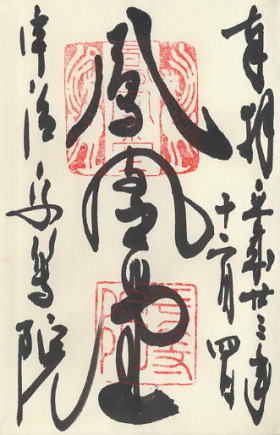 奉拝 平成廿三年
十二月四日
鳳凰堂
宇治平等院